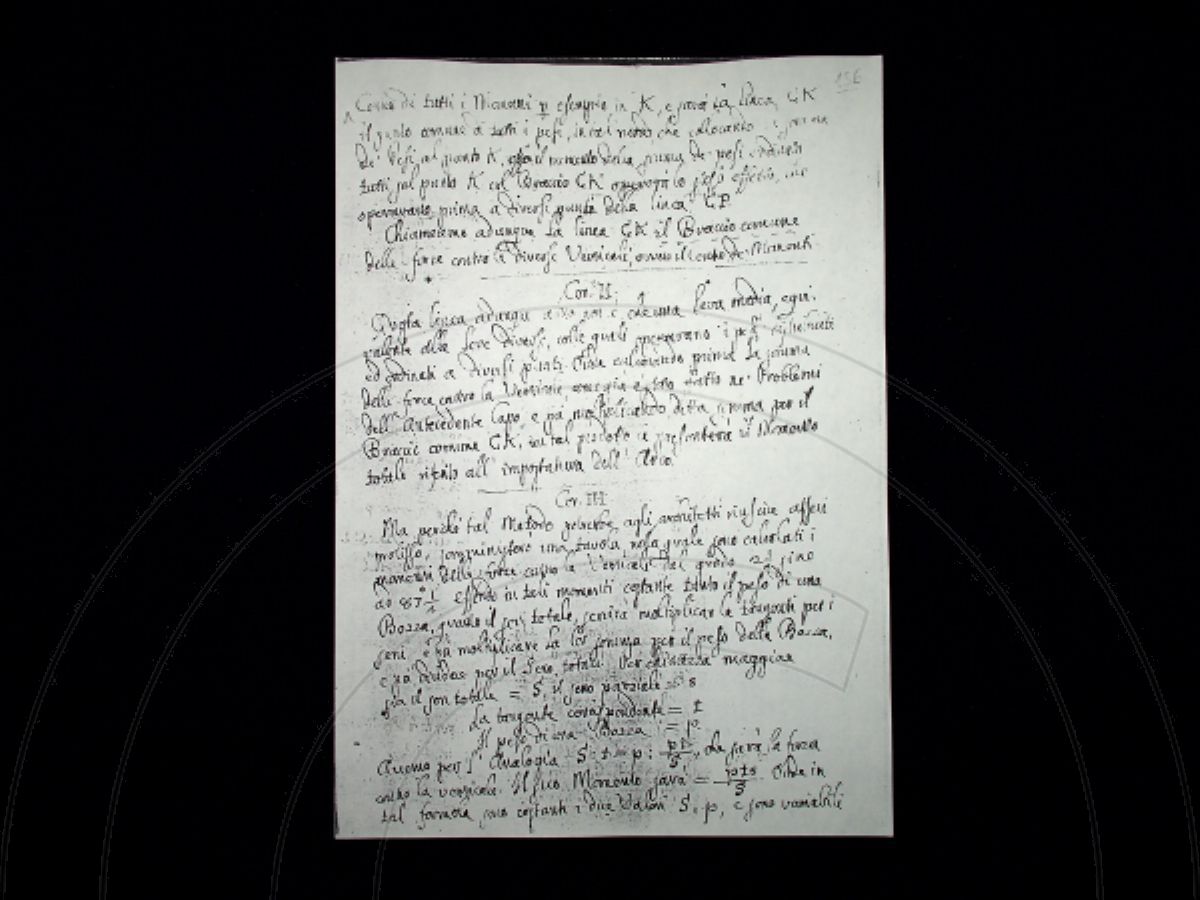 15E
Centro di tutti i Momenti p esempio in K, e sarà la linea GK
il punto comune di tutti i pesi, in tal modo che collocando
de' Pesi al punto K, il momento della somma de pesi
tutti sul punto K col Braccio GK opererà lo stesso effetto, che
operavano prima a diversi punti della linea GP.
Chiameremo adunque la linea GK il Braccio comune
delle forze contro le diverse Verticali, ovvero il Centro de Momenti
Cor. II.
Quella linea adunque una leva media, equi-
valente alle leve diverse, colle quali operavano i pesi
ed ordinati a diversi punti. Onde calcolando prima la somma
delle forze contro la Verticale, come già è stato fatto ne' Problemi
dell' Antecedente Capo, e poi moltiplicando detta somma per il
Braccio comune GK, un tal prodotto ci presenterà il Momento
totale riferito all' impostatura dell' Arco.
Cor. III
Ma perché tal Metodo potrebbe agli architetti riuscire assai
molesto, una tavola, nella quale sono calcolati i
momenti delle forze contro la Verticale dal grado 2½ sino
ad 87½. Essendo in tali momenti costante tanto il peso di una
Bozza, quanto il sen totale, servirà moltiplicar le tangenti per i
seni, e poi moltiplicare la lor somma per il peso della Bozza,
e poi dividere per il Seno totale. Per chiarezza maggiore
sia il sen totale = S, il seno parziale = s
La tangente corrispondente = t
Il peso di una Bozza = p
Avremo per l' Analogia S : t = p : pt/S, che sarà la forza
contro la verticale. Il suo Momento sarà = pts/S Onde in
tal formola sono costanti i due Valori S, p, e sono variabili